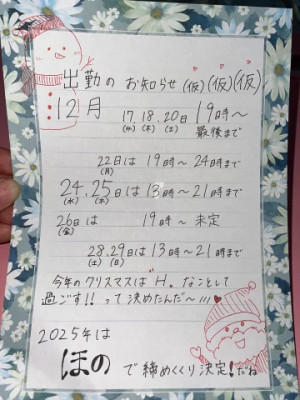 出勤のお知らせ(仮)(仮)(仮)
12月 17.18.20日 19時〜
(水)(木)(土) 最後まで
22日は 19時〜24時まで
(月)
24.25日は 13時〜21時まで
(水)(木)
26日は 19時〜未定
(金)
28.29日は 13時〜21時まで
(土)(日)
今年のクリスマスは"H"なことして
過ごす!!って決めたんだ〜!!!
2025年は
ほので締めくくり決定!だね